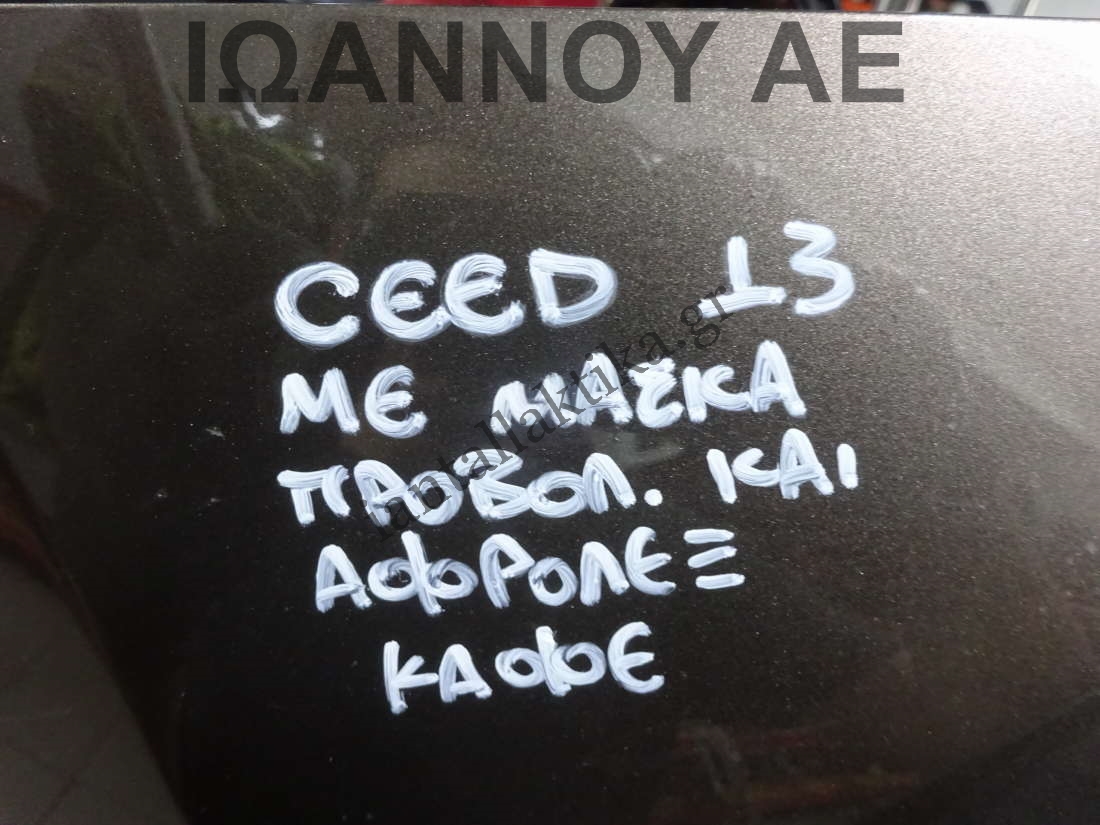 ΙΩΑΝΝΟΥ ΑΕ
CEED 13
ΜΕ ΜΑΣΚΑ
ΠΡΟΒΟΛ. ΚΑΙ
ΑΦΡΟΛΕΞ
ΚΑΦΕ
iantallaktika.gr